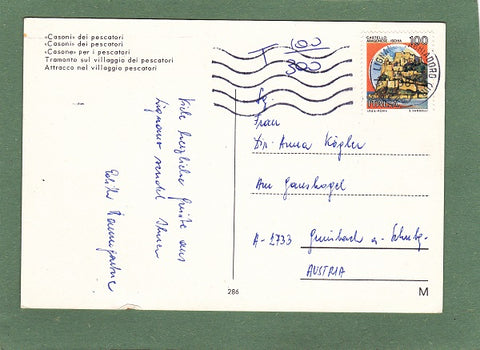 «Casoni» dei pescatori
«Casoni» dei pescatori
«Casone» per i pescatori
Tramonto sul villaggio dei pescatori
Attracco nel villaggio pescatori
T 100
300
CASTELLO
ARAGONESE - ISCHIA
100
ITALIA
Viele herzliche Grüße aus
Lignano sendet Ihnen
Edith Baumgartner
Frau
Dr. Anna Kögler
Am Ganskogel
A - 2733 Grünbach a. Schnbg.
AUSTRIA
286
M